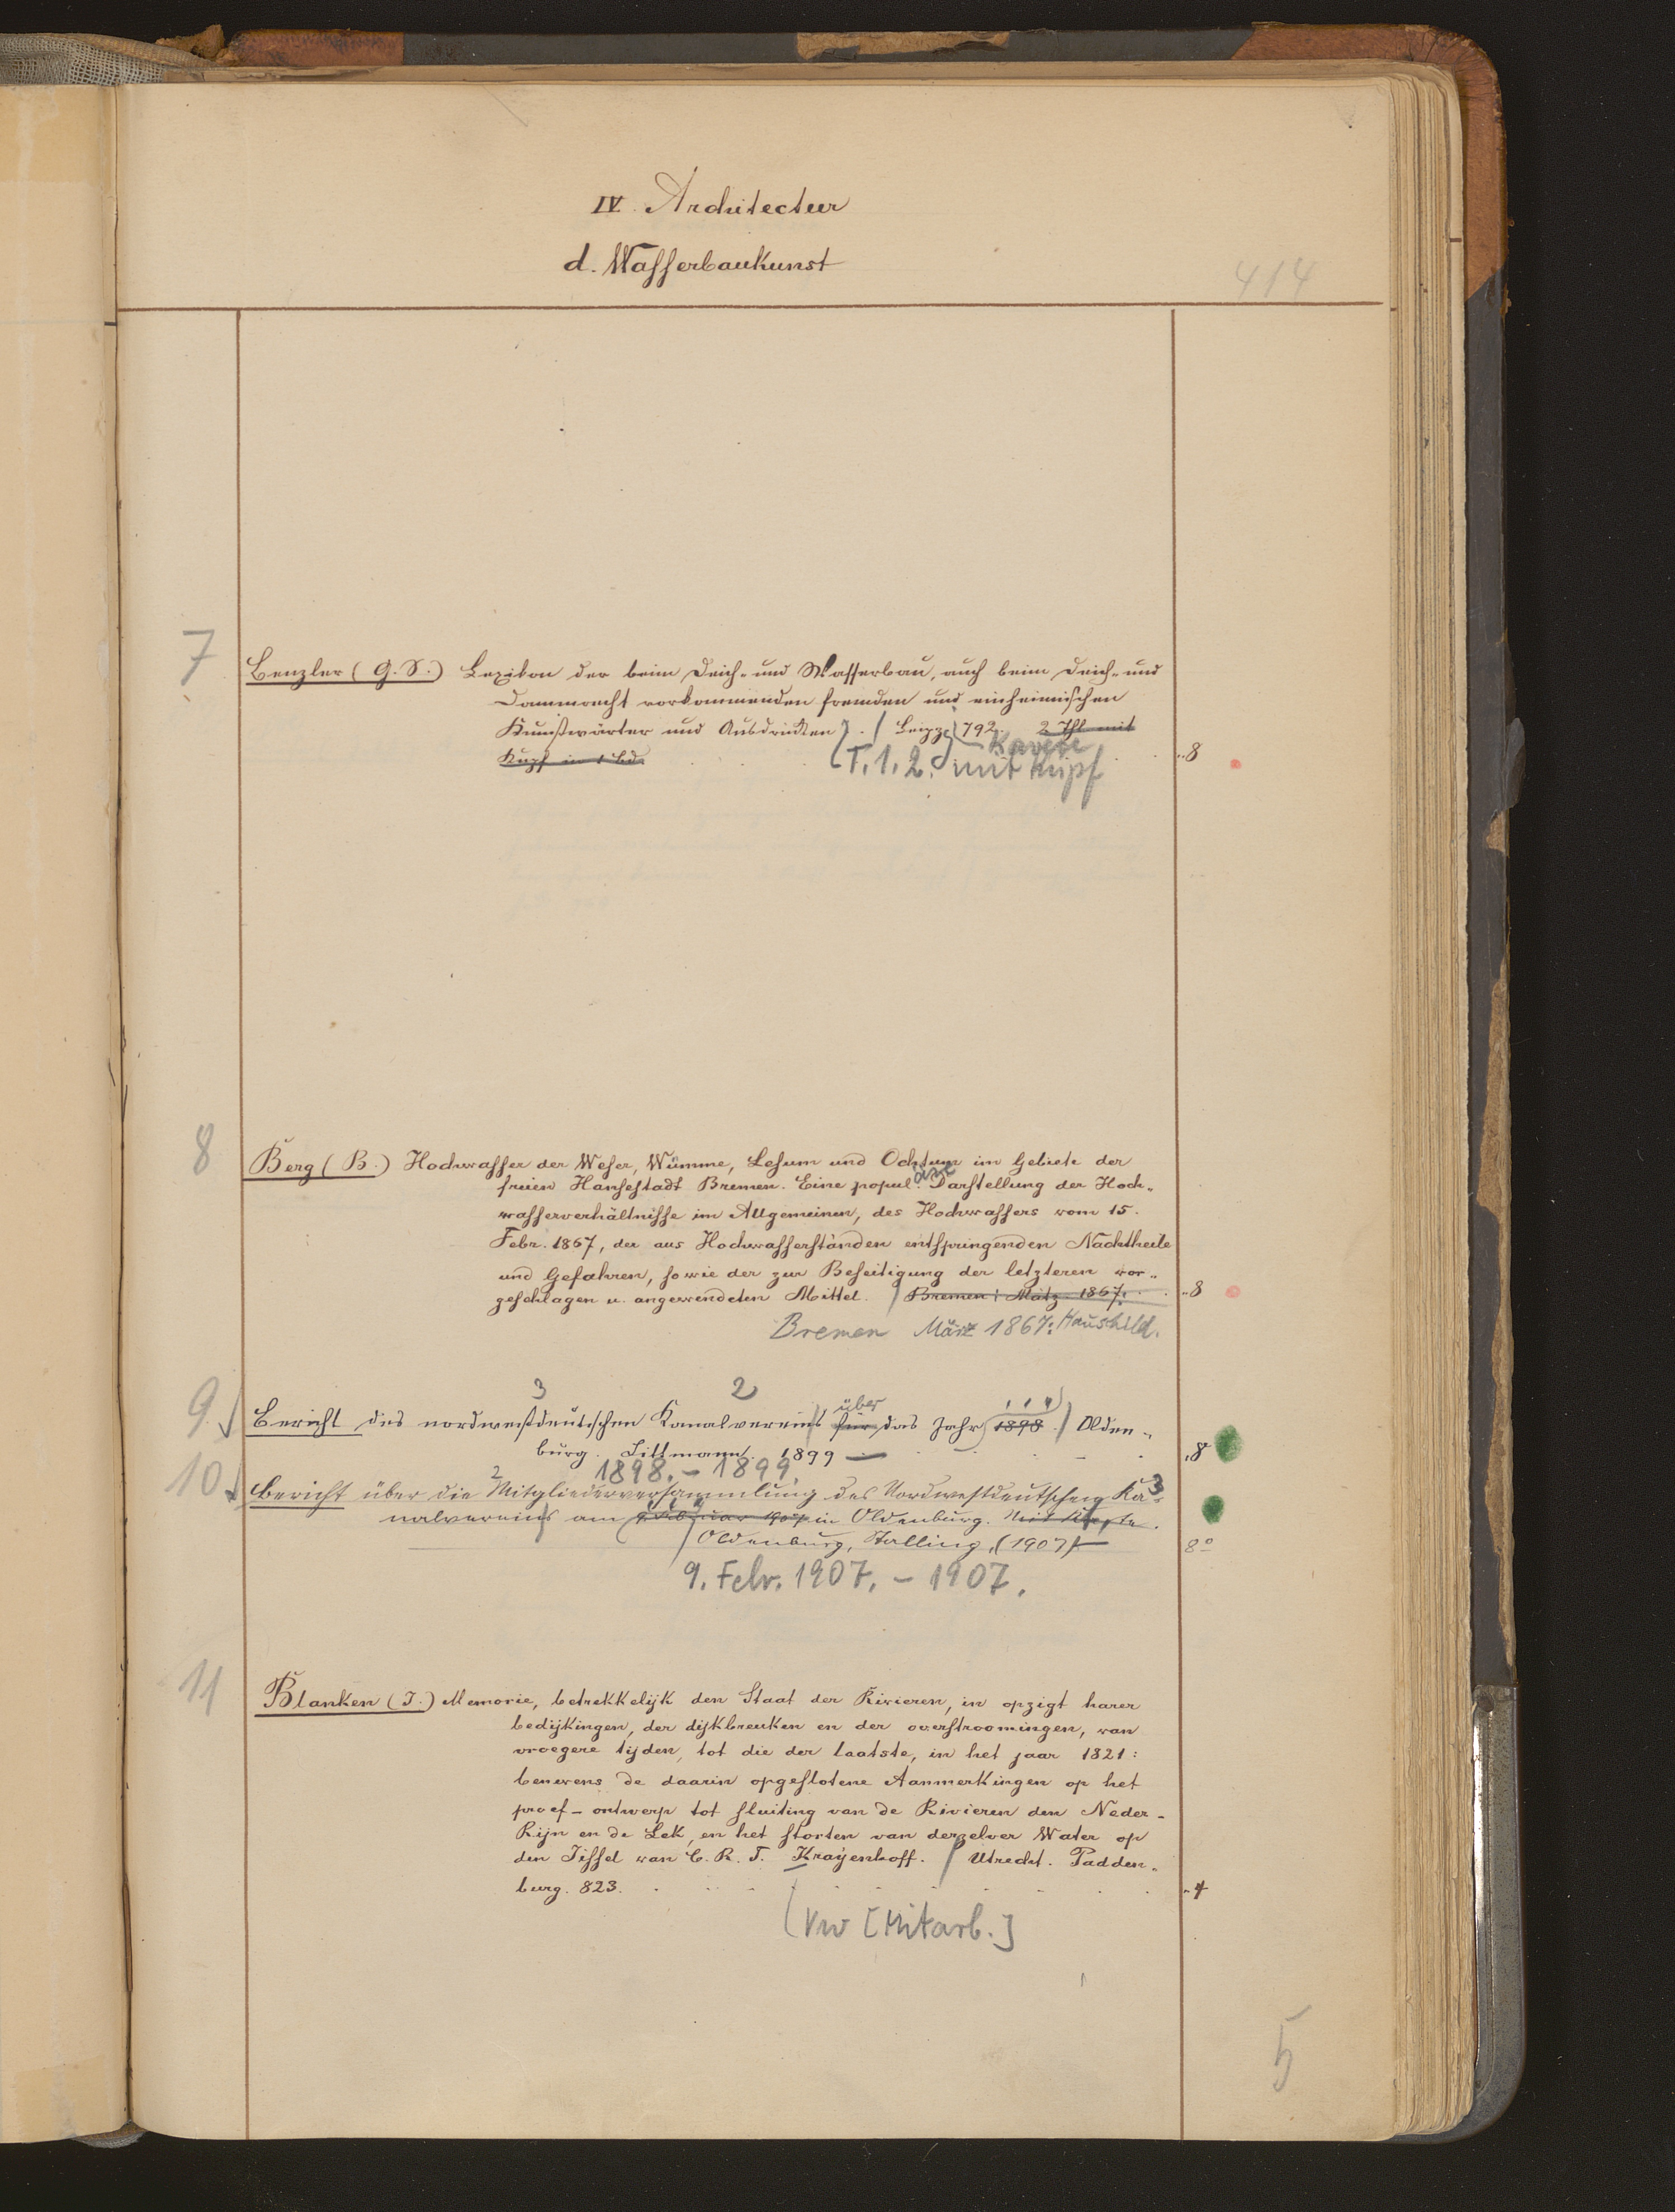 IV. Architectur
d. Wasserbaukunst
414
7
Benzler (G. S.) Lexikon der beim Deich- und Wasserbau, auch beim Deich- und
Dammrecht vorkommenden fremden und einheimischen
Kunstwörter und Ausdrücken). / Leipzg 792. 2 Thl mit
Kupf in 1 Bd. 8
(T. 1. 2. mit Kupf
8
Berg (B.) Hochwasser der Weser, Wümme, Lesum und Ochtum im Gebiete der
freien Hansestadt Bremen. Eine popul. äre Darstellung der Hoch-
wasserverhältnisse im Allgemeinen, des Hochwassers vom 15.
Febr. 1867, der aus Hochwasserständen entspringenden Nachtheile
und Gefahren, sowie der zur Beseitigung der letzteren vor-
geschlagen u. angewendeten Mittel. / Bremen: Mätz 1867. 8
Bremen März 1867: Hauschild.
3 2
9. Bericht des nordwestdeutschen Kanalvereins für über das Jahr 1898. / Olden-
burg. Littmann. 1899 — 8
1898. - 1899.
10. Bericht über die 2 Mitgliederversammlung des Nordwestdeutschen Ka- 3
nalvereins am 9. Februar 1907 in Oldenburg. Mit Karte.
/ Oldenburg, Stalling, (1907) — 8°
9. Febr. 1907. - 1907.
11
Blanken (J.) Memorie, betrekkelijk den Staat der Rivieren, in opzigt harer
bedijkingen, der dijkbreuken en der overstroomingen, van
vroegere tijden, tot die der laatste, in het jaar 1821:
benevens de daarin opgeslotene Aanmerkingen op het
proef-ontwerp tot sluiting van de Rivieren den Neder-
Rijn en de Lek, en het storten van derzelver Water op
den Jissel van C. R. T. Krayenhoff. / Utrecht. Padden-
burg. 823. 4
(Vw [Mitarb.]
5